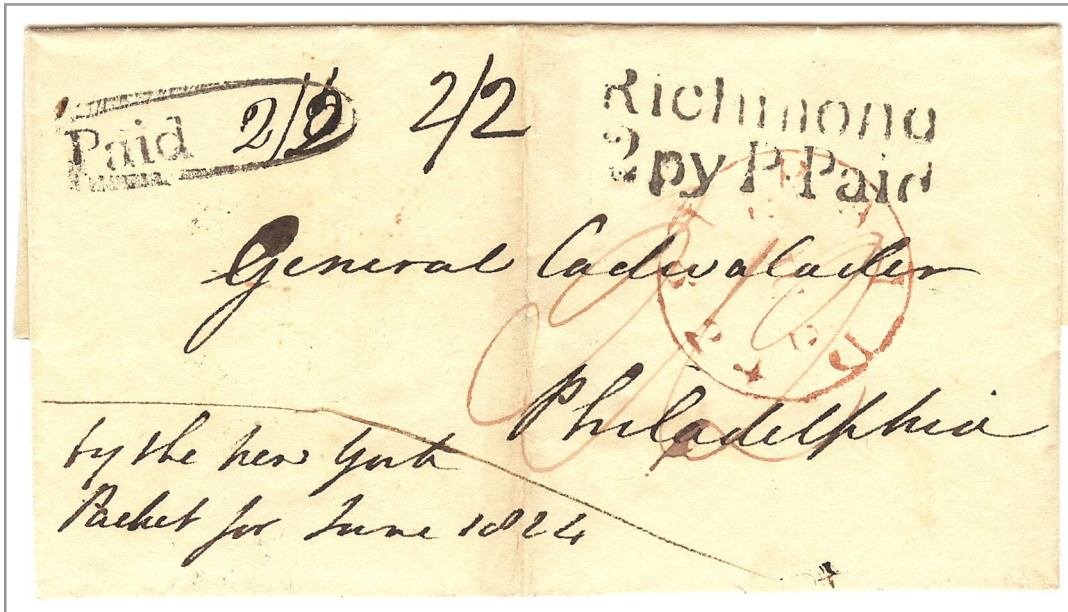 Paid 2/2 2/2
Richmond
2py P. Paid
General Cadwalader
Philadelphia
by the new York
Packet for June 1824